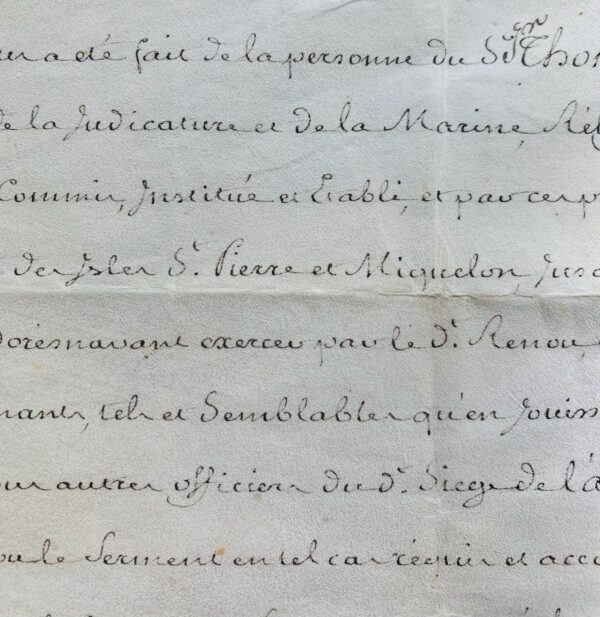 a été fait de la personne du Sr. Thom
de la Judicature et de la Marine, Rég
Commis, Institué et Etabli, et par ces p
des Isles St. Pierre et Miquelon, Jusq
dorésnavant exercer par le dt. Renou,
nants, tels et Semblables qu'en Jouiss
our autres officiers du dt. Siege de l'a
ou le Serment en tel cas réquis et accou